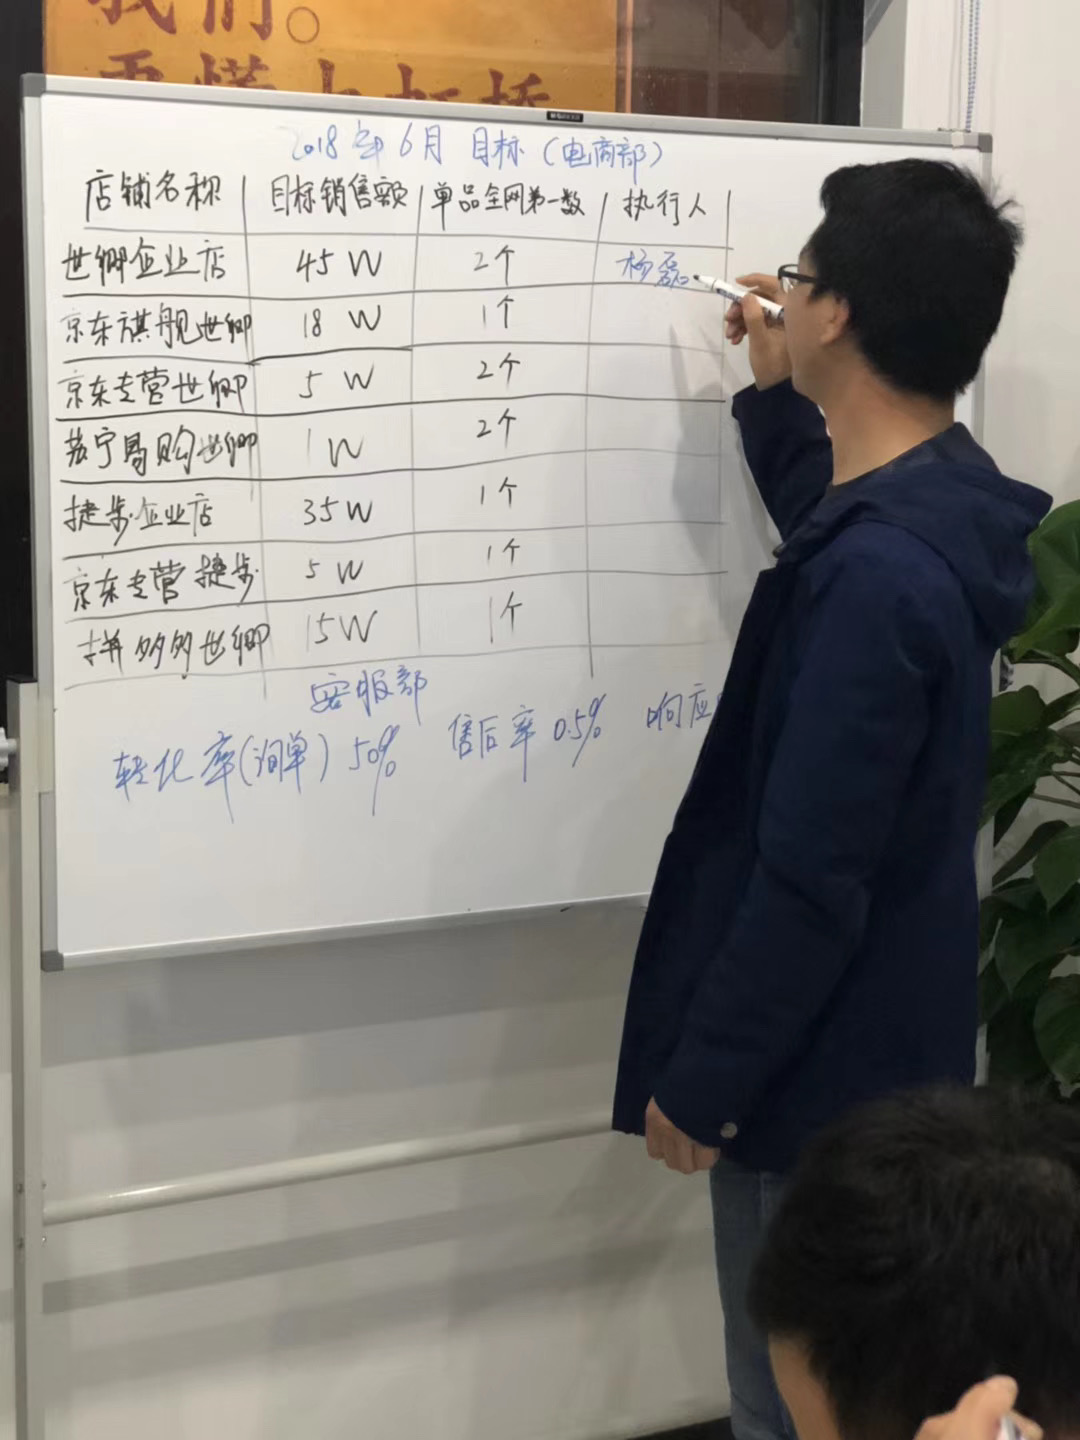 我们。
2018年6月 目标（电商部）
店铺名称 目标销售额 单品全网第一数 执行人
世卿企业店 45W 2个 杨磊
京东旗舰世卿 18W 1个
京东专营世卿 5W 2个
苏宁易购世卿 1W 2个
捷步企业店 35W 1个
京东专营捷步 5W 1个
拼多多世卿 15W 1个
客服部
转化率(询单) 50% 售后率 0.5% 响应